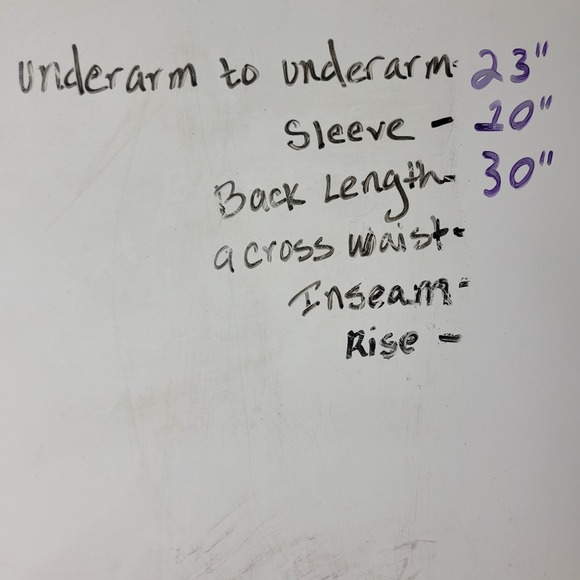 underarm to underarm- 23"
Sleeve - 10"
Back Length- 30"
across waist-
Inseam-
Rise -